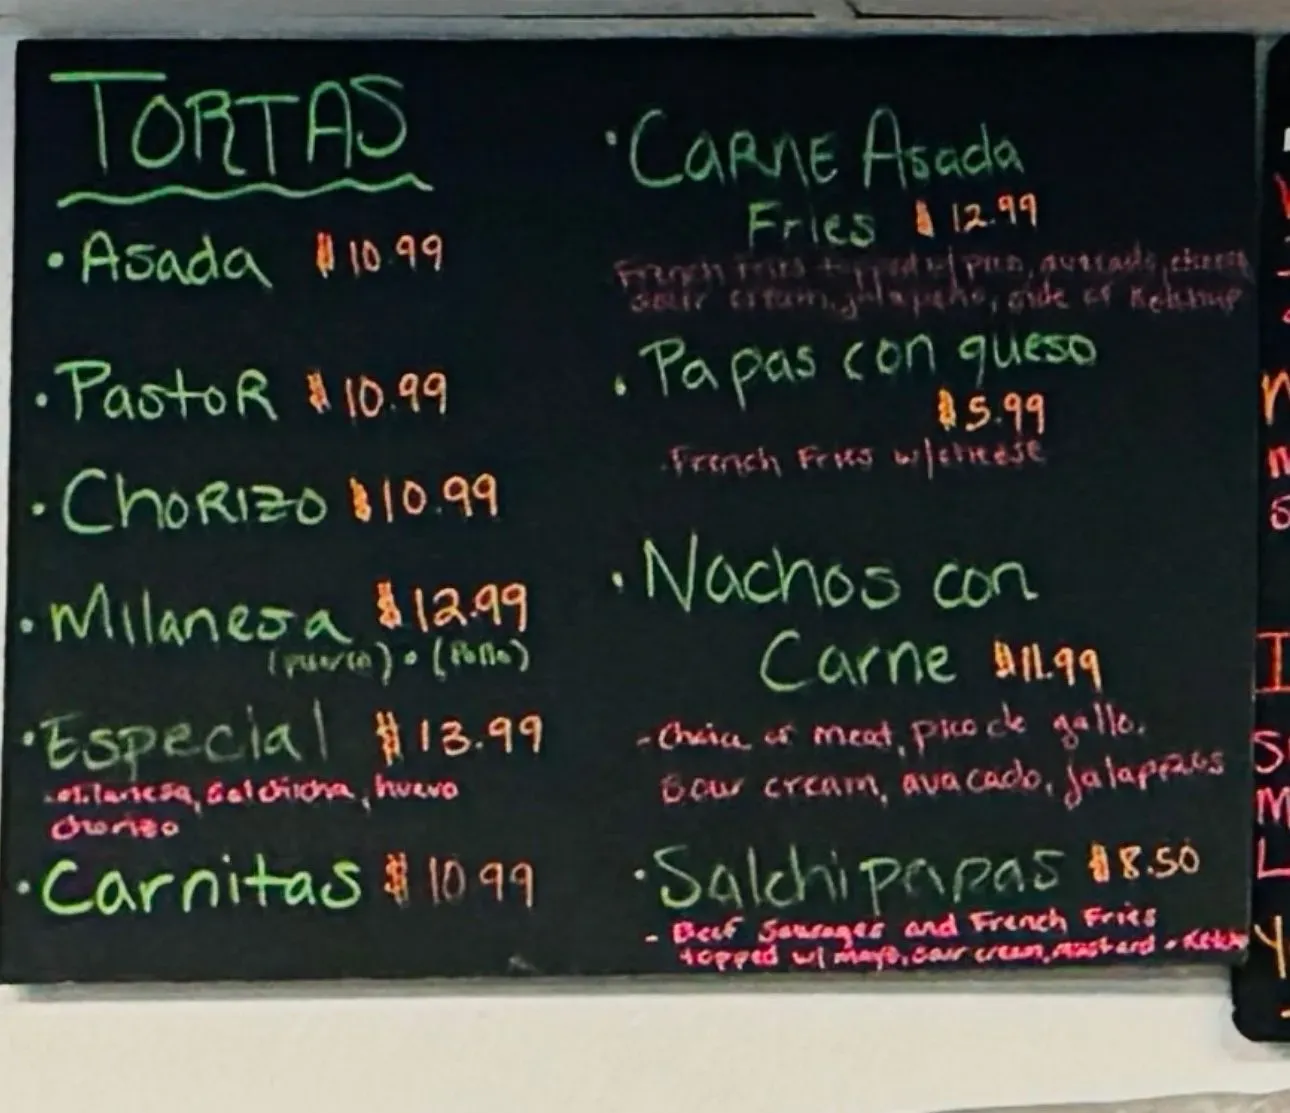 TORTAS
• Asada $10.99
• PastoR $10.99
• CHORIZO $10.99
• Milanesa $12.99
(puerco) • (Pollo)
• Especial $13.99
milanesa, salchicha, huevo
chorizo
• Carnitas $10.99
• CARNE Asada
Fries $12.99
French Fries topped w/pico, avacado, cheese
sour cream, jalapeño, side of Ketchup
• Papas con queso
$5.99
French Fries w/cheese
• Nachos con
Carne $11.99
- Choice of meat, pico de gallo,
Sour cream, avacado,
• Salchipapas $8.50
- Beef Sausages and French Fries
topped w/ mayo, sour cream, mustard +